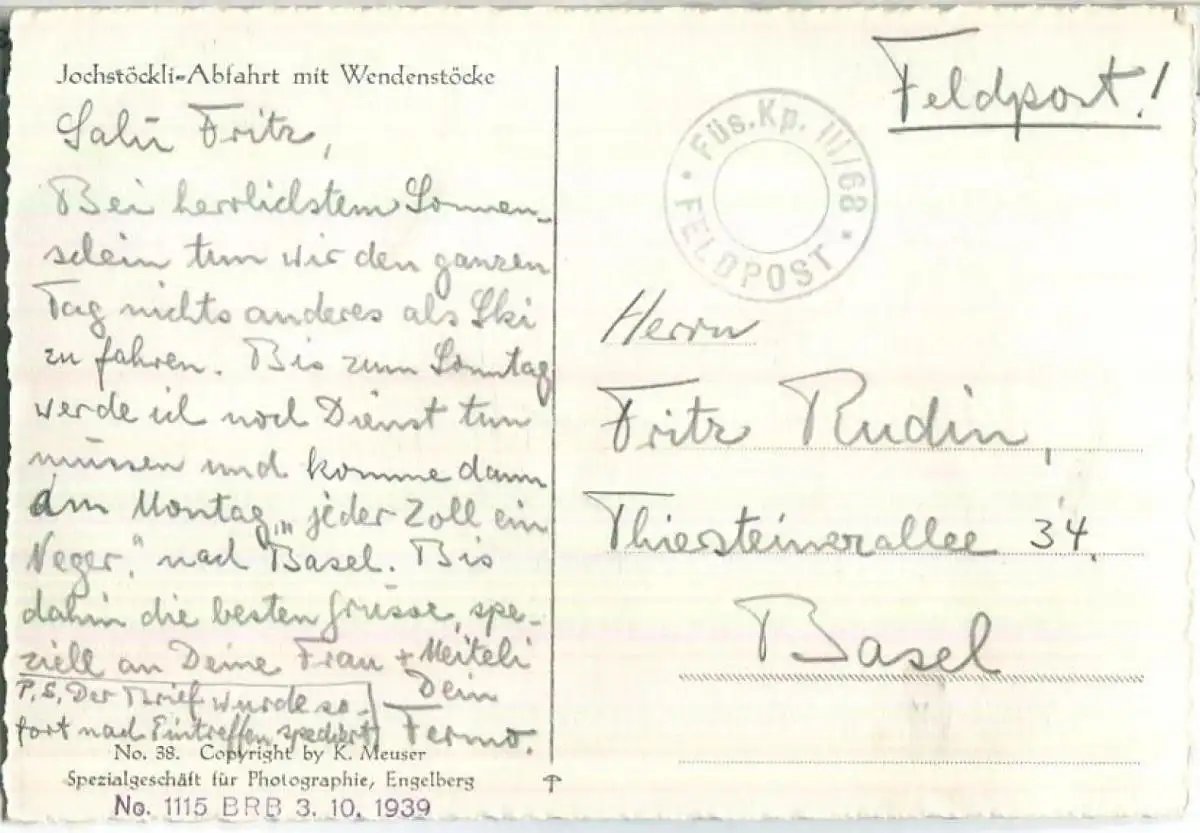 Jochstöckli-Abfahrt mit Wendenstöcke
Salü Fritz,
Bei herrlichstem Sonnen-
schein tun wir den ganzen
Tag nichts anderes als Ski
zu fahren. Bis zum Sonntag
werde ich noch Dienst tun
müssen und komme dann
am Montag „jeder Zoll ein
Neger." nach Basel. Bis
dahin die besten Grüsse, spe-
ziell an Deine Frau + Meiteli
Dein
Fermo.
P.S. Der Brief wurde so-
fort nach Eintreffen spediert
No. 38. Copyright by K. Meuser
Spezialgeschäft für Photographie, Engelberg
No. 1115 BRB 3. 10. 1939
Feldpost!
Füs. Kp. III/68
FELDPOST
Herrn
Fritz Rudin,
Thiersteinerallee 34.
Basel